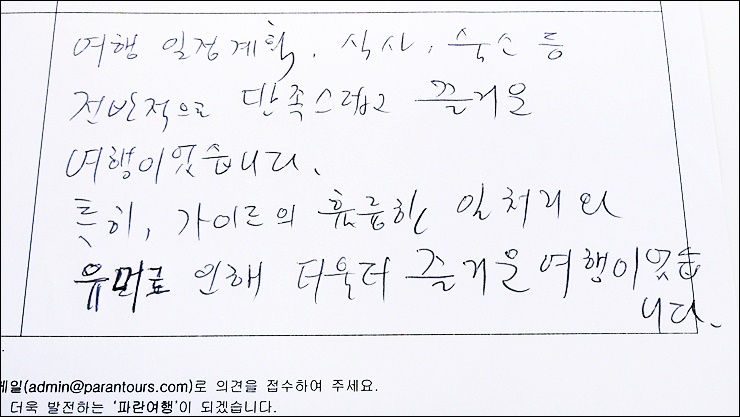 여행 일정계획, 식사, 숙소 등
전반적으로 만족스럽고 즐거운
여행이었습니다.
특히, 가이드의 훌륭한 일처리와
유머로 인해 더욱더 즐거운 여행이었습
니다.
메일(admin@parantours.com)로 의견을 접수하여 주세요.
더욱 발전하는 '파란여행'이 되겠습니다.